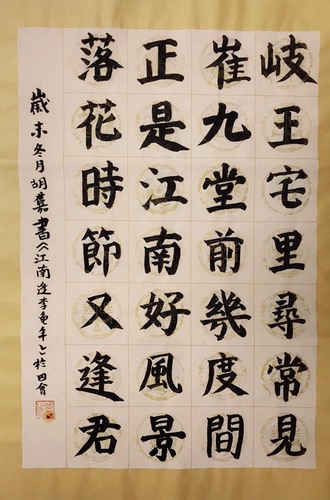 岐王宅里尋常見
崔九堂前幾度間
正是江南好風景
落花時節又逢君
歲末冬月胡嘉書《江南逢李龟年》於田會